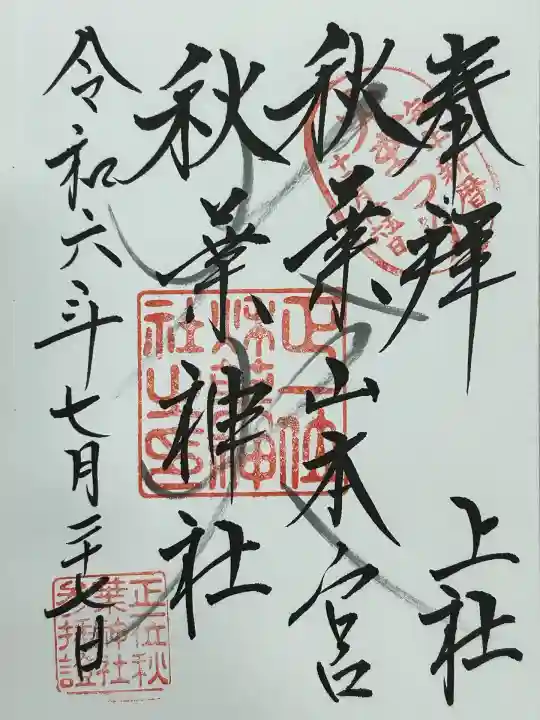 奉拝 上社
秋葉山本宮
秋葉神社
令和六年七月二十七日
正一位秋葉神社之印
正一位秋葉神社参拝證